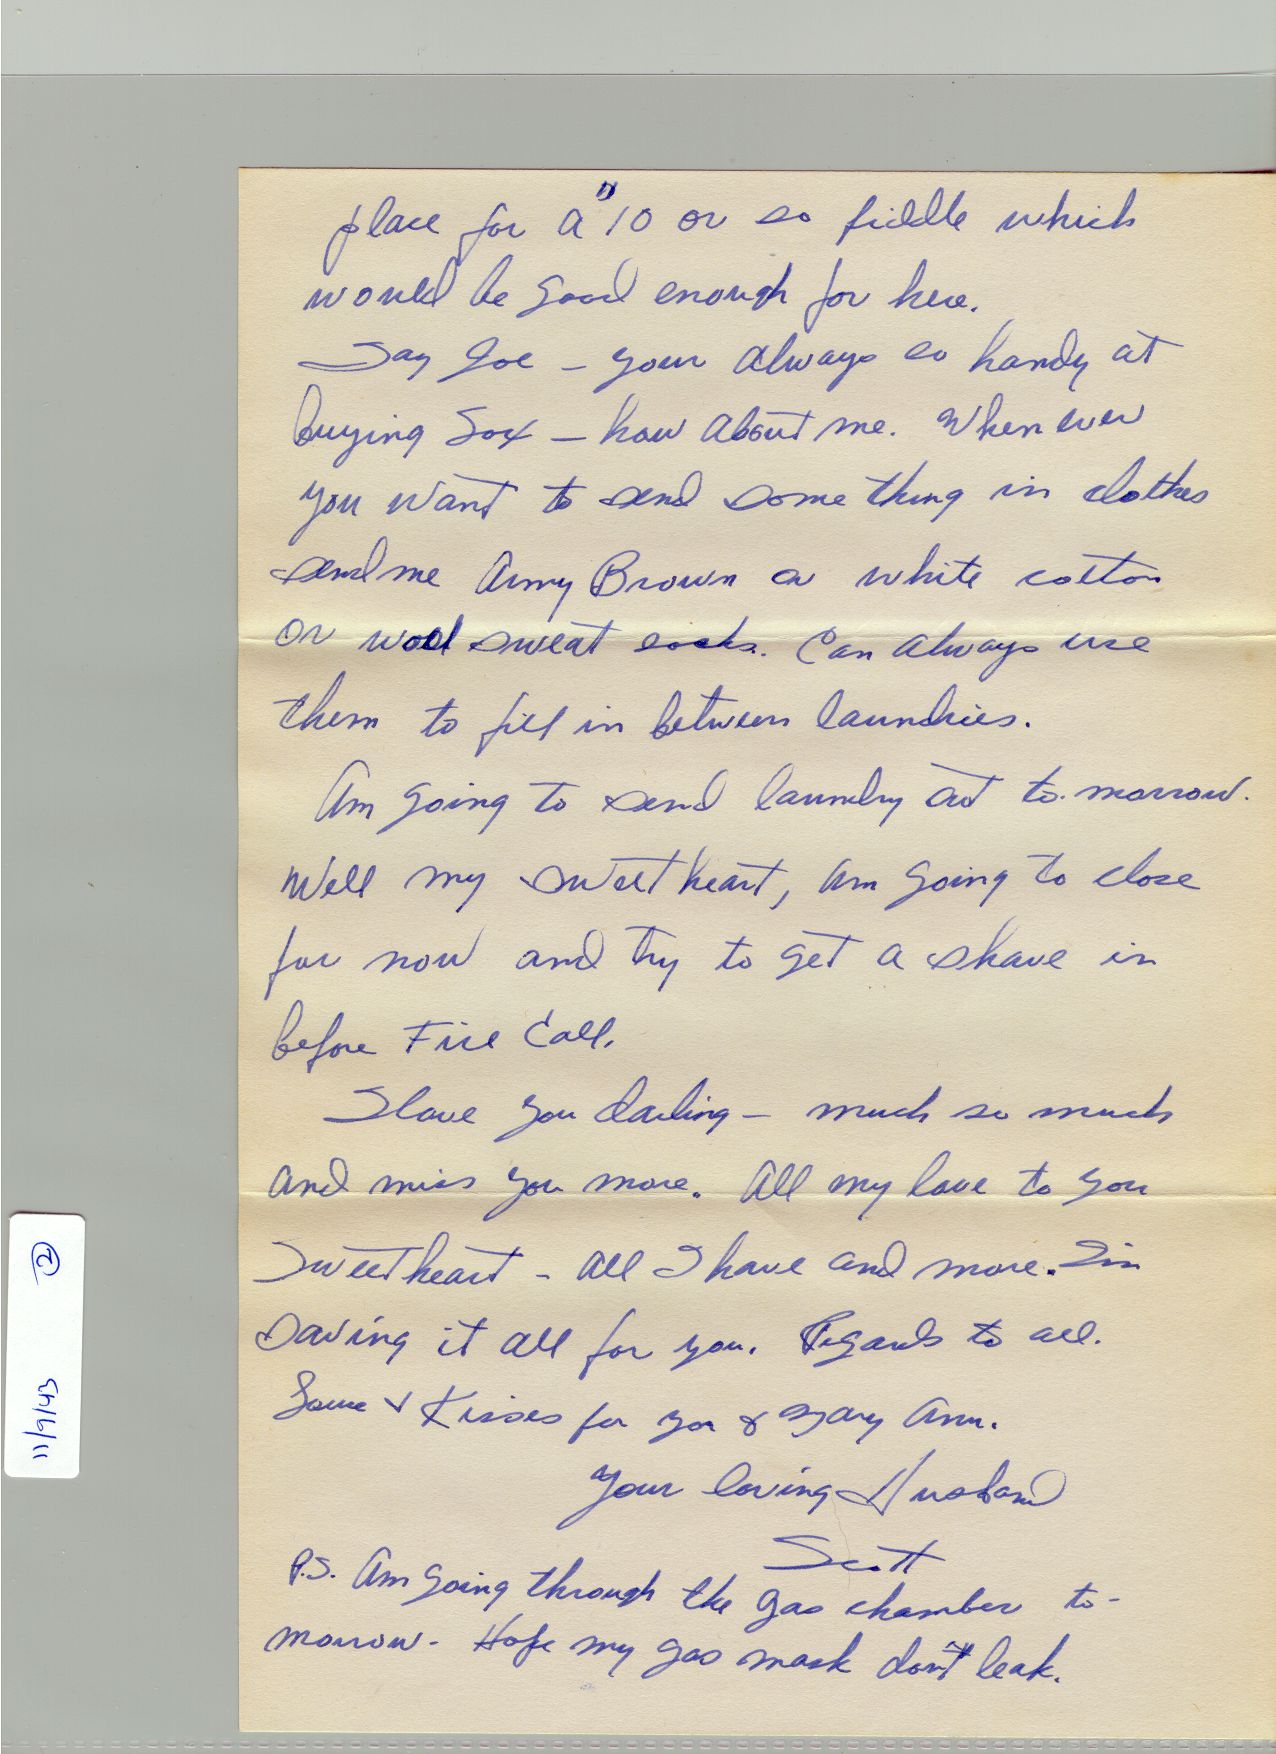 place for a "10 or so fiddle which
would be good enough for here.
Say Joe – your always so handy at
buying Sox – how about me. When ever
you want to send some thing in clothes
send me Army Brown or white cotton
or wool sweat socks. Can always use
them to fill in between laundries.
Am going to send laundry out to-morrow.
Well my sweetheart, am going to close
for now and try to get a shave in
before Fire Call.
I love you darling – much so much
and miss you more. All my love to you
Sweetheart – all I have and more. I'm
saving it all for you. Regards to all.
Love & Kisses for you & Mary Ann.
Your loving Husband
Scott
P.S. Am going through the gas chamber to-
morrow - Hope my gas mask don't leak.
11/9/43 2